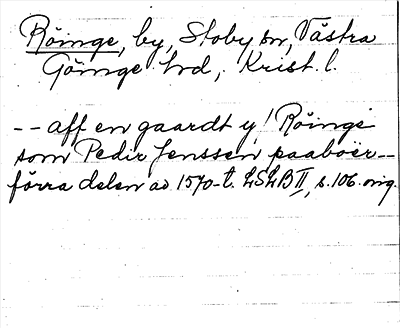 Röinge, by, Stoby sn, Västra
Göinge hrd, Krist. l.
-- aff en gaardt y! Röinge
som Pedir Jenssen paaboër --
förra delen av 1570-t. LSLB II, s. 106. orig.